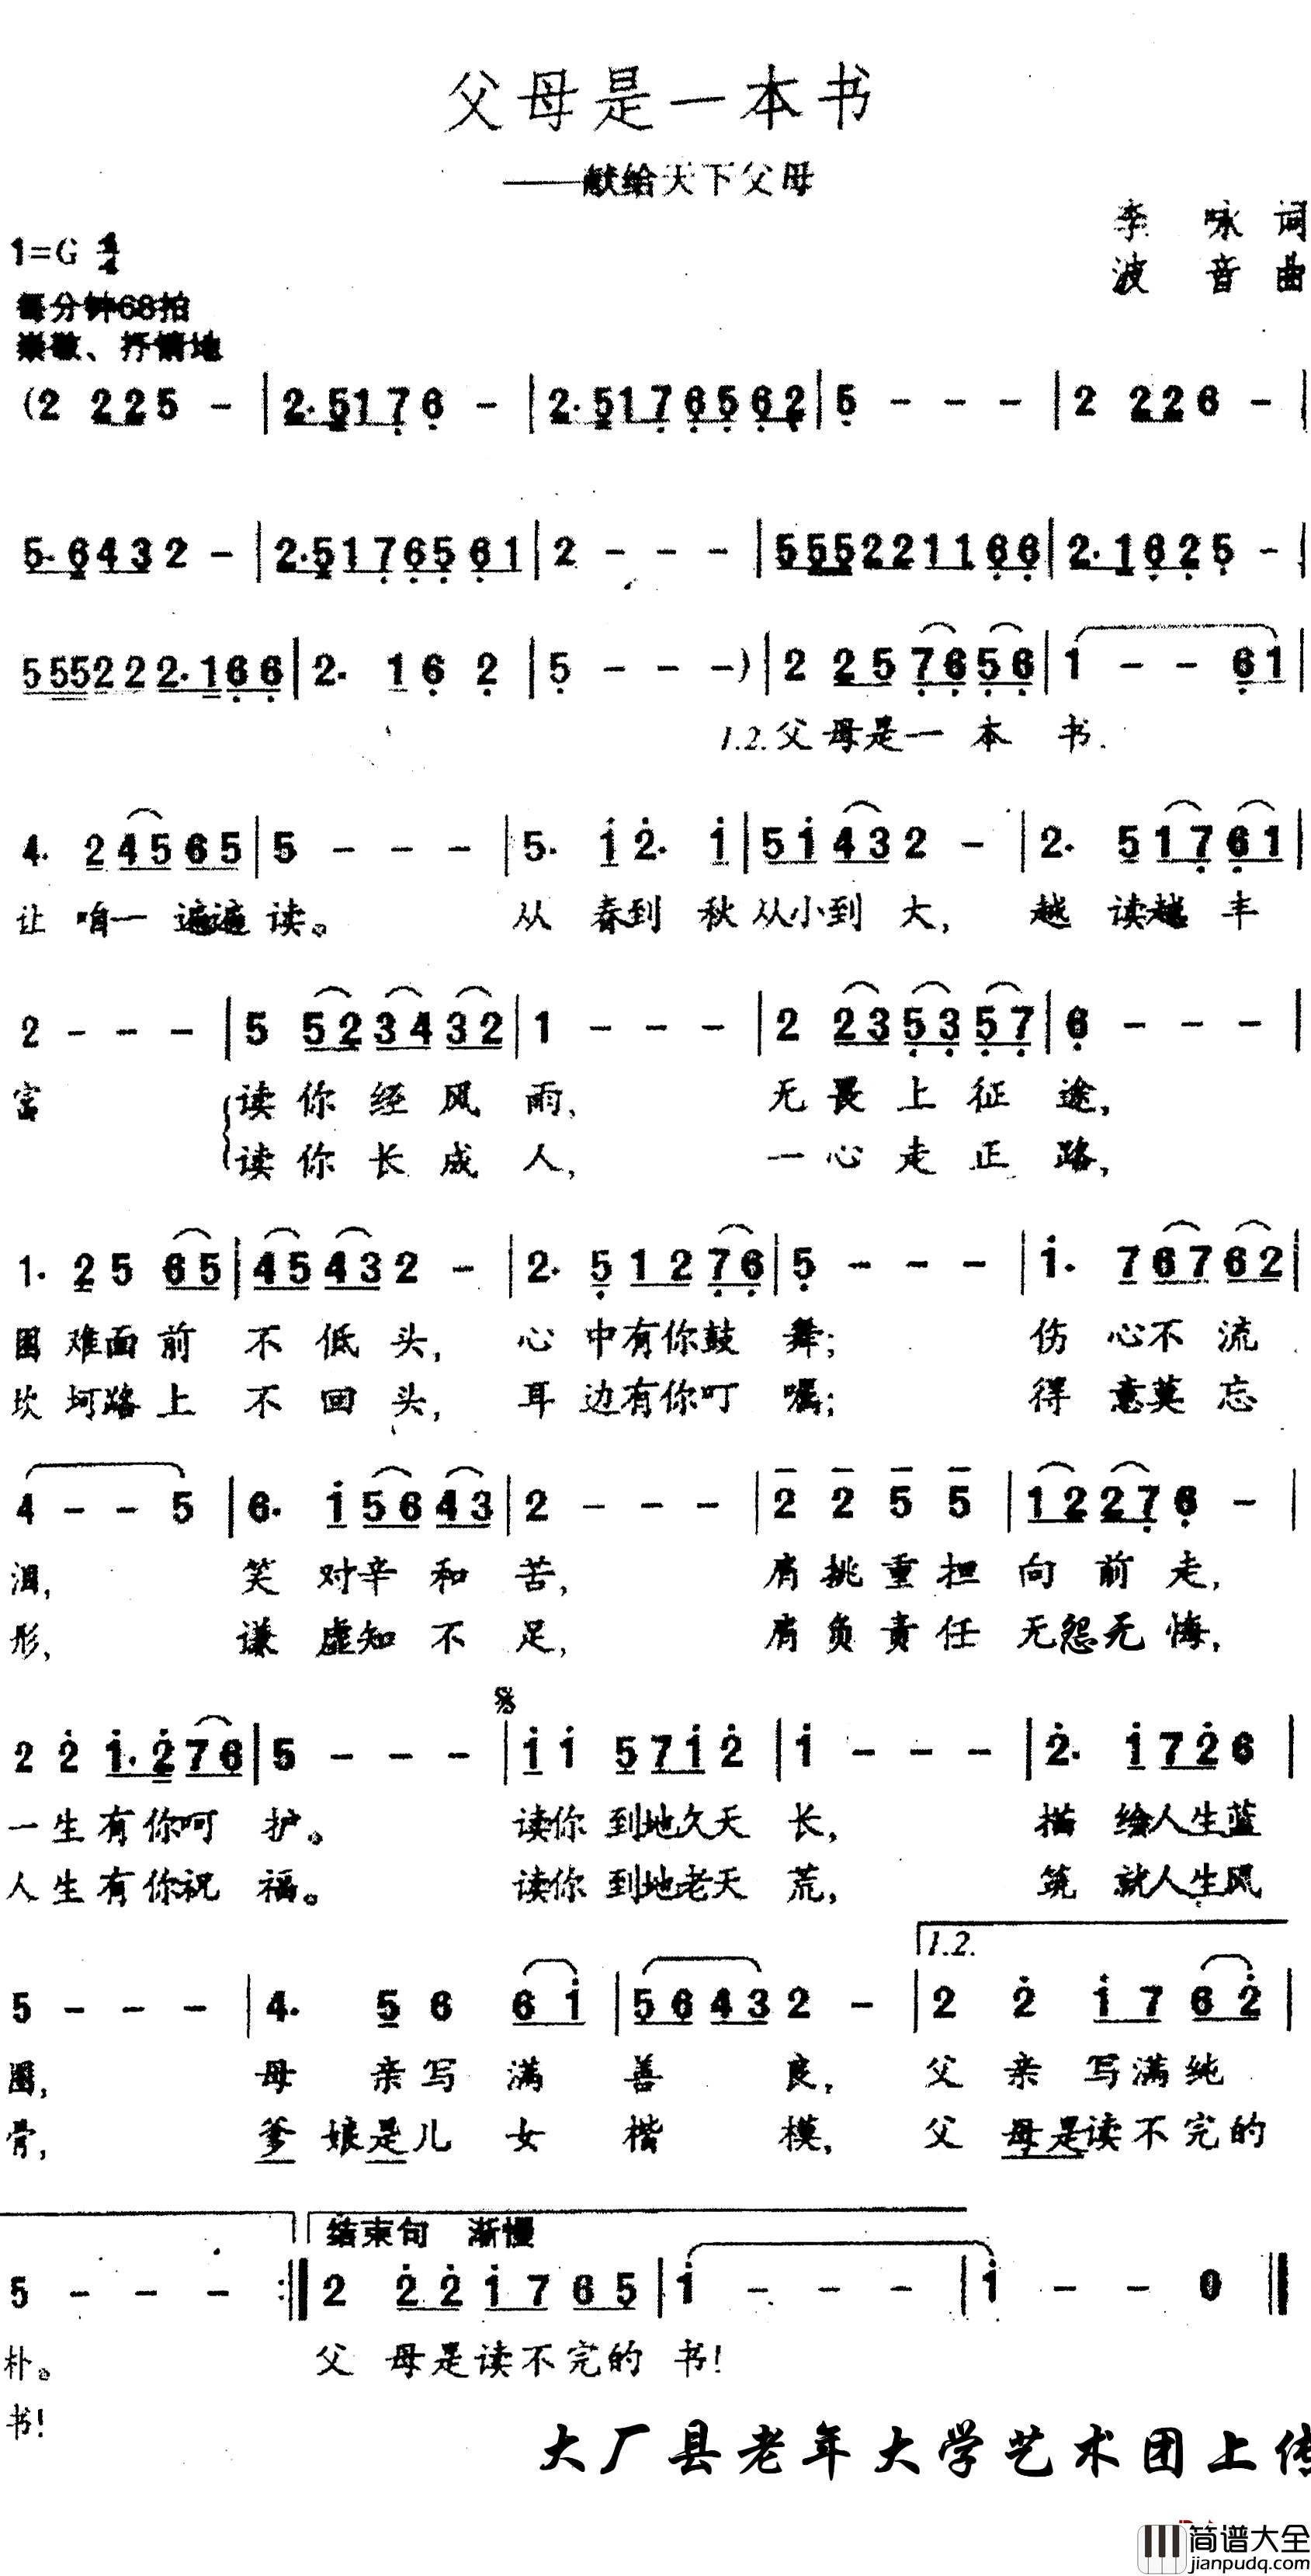 父母是一本书
——献给天下父母
李 咏 词
1=G 4/4
波 音 曲
每分钟68拍
崇敬、抒情地
(2 2 2 5 - | 2. 5 1 7 6 - | 2. 5 1 7 6 5 6 2 | 5 - - - | 2 2 2 6 - |
5. 6 4 3 2 - | 2. 5 1 7 6 5 6 1 | 2 - - - | 5 5 5 2 2 1 1 6 6 | 2. 1 6 2 5 - |
5 5 5 2 2 2. 1 6 6 | 2. 1 6 2 | 5 - - -) | 2 2 5 7 6 5 6 | 1 - - 6 1 |
1.2.父母是一 本 书.
4. 2 4 5 6 5 | 5 - - - | 5. 1 2. 1 | 5 1 4 3 2 - | 2. 5 1 7 6 1 |
让 咱一 遍遍 读。 从 春到 秋 从小到 大, 越 读越 丰
2 - - - | 5 5 2 3 4 3 2 | 1 - - - | 2 2 3 5 3 5 7 | 6 - - - |
富 读 你 经 风 雨, 无 畏 上 征 途,
读 你 长 成 人, 一 心 走 正 路,
1. 2 5 6 5 | 4 5 4 3 2 - | 2. 5 1 2 7 6 | 5 - - - | 1. 7 6 7 6 2 |
困 难面 前 不 低 头, 心 中有你鼓 舞; 伤 心不 流
坎 坷路 上 不 回 头, 耳 边有你叮 嘱; 得 意莫 忘
4 - - 5 | 6. 1 5 6 4 3 | 2 - - - | 2 2 5 5 | 1 2 2 7 6 - |
泪, 笑 对辛 和 苦, 肩 挑 重 担 向 前 走,
形, 谦 虚知 不 足, 肩 负 责 任 无 怨 无 悔,
2 2 1. 2 7 6 | 5 - - - | 1 1 5 7 1 2 | 1 - - - | 2. 1 7 2 6 |
一 生 有 你呵 护。 读你 到地久天 长, 描 绘人生蓝
人 生 有 你祝 福。 读你 到地老天 荒, 筑 就人生风
1.2.
5 - - - | 4. 5 6 6 1 | 5 6 4 3 2 - | 2 2 1 7 6 2 |
图, 母 亲写 满 善 良, 父 亲 写满纯
骨, 爹 娘是儿 女 楷 模, 父 母是读不完的
结束句 渐慢
5 - - - :| 2 2 2 1 7 6 5 | 1 - - - | 1 - - 0 |
朴。 父 母是读不完的 书!
书!
大厂县老年大学艺术团上传
简谱大全
jianpudq.com